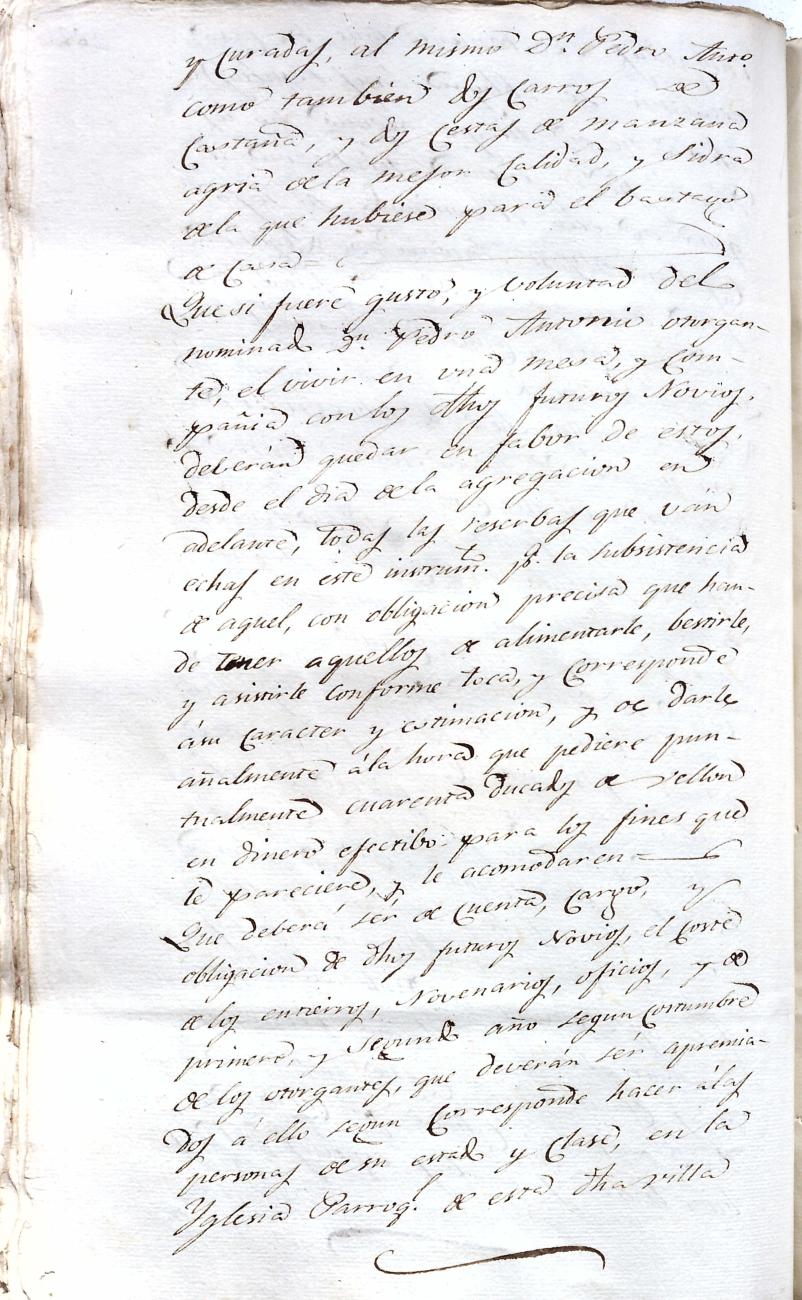 y Curadas, al mismo Dn. Pedro Anto.
como tambien dos Carros de
Castaña, y dos Cestas de manzana
agria de la mejor Calidad, y Sidra
de la que hubiese para el bastago
de Casa=
Que si fuere gusto, y Voluntad del
nominado Dn. Pedro Antonio otorgan-
te, el vivir en una mesa, y Com-
pañia con los dhos futuros Novios,
deberán quedar en fabor de estos,
desde el dia de la agregacion en
adelante, todas las reserbas que ván
echas en este instrumto. pa. la subsistencia
de aquel, con obligacion precisa que han
de tener aquellos de alimentarle, bestirle,
y asistirle conforme toca, y Corresponde
ásu Caracter y estimacion, y de darle
añalmente ála hora que pediere pun-
tualmente cuarenta Ducados de vellon
en dinero efectibo para los fines que
le pareciere, y le acomodaren=
Que deberá sér de Cuenta, Cargo, y
obligacion de dhos futuros Novios, el Coste
de los entierros, Novenarios, oficios, y de
primero, y Segundo año segun Costumbre
de los otorgantes, que deverán sér apremia-
dos á ello segun Corresponde hacer álas
personas de su estado y Clase, en la
Yglesia Parroql. de esta dha villa